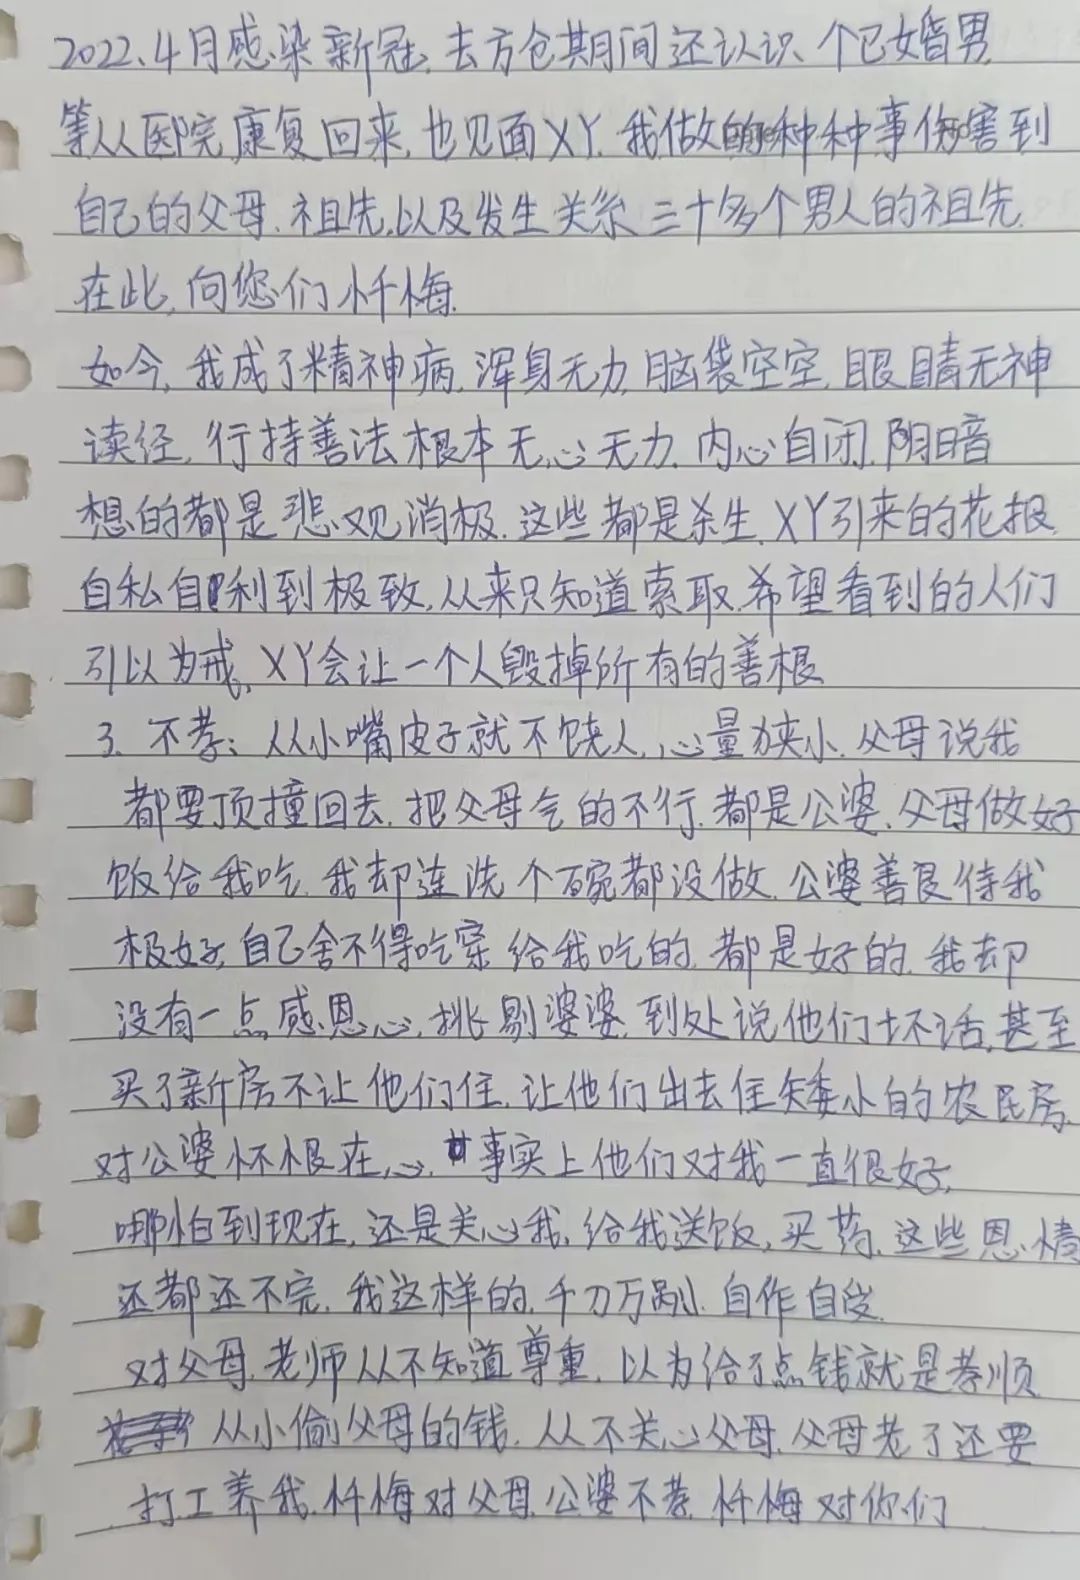 2022.4月感染新冠,去方仓其月间还认识个已婚男.
等从医院康复回来,也见面XY.我做的种种事伤害到
自己的父母.祖先,以及发生关系三十多个男人的祖先.
在此,向您们忏悔.
如今,我成了精神病,浑身无力,脑袋空空,眼睛无神
读经,行持善法根本无心无力.内心自闭.阴暗
想的都是悲观消极.这些都是杀生.XY引来的花报.
自私自利到极致,从来只知道索取.希望看到的人们
引以为戒,XY会让一个人毁掉所有的善根
3.不孝:从小嘴皮子就不饶人,心量狭小.父母说我
都要顶撞回去.把父母气的不行.都是公婆.父母做好
饭给我吃.我却连洗个碗都没做.公婆善良待我
极好,自己舍不得吃穿给我吃的都是好的.我却
没有一点感恩心,挑剔婆婆,到处说他们坏话,甚至
买了新房不让他们住.让他们出去住矮小的农民房.
对公婆怀恨在心.事实上他们对我一直很好,
哪怕到现在,还是关心我,给我送饭,买药.这些恩情
还都还不完.我这样的.千刀万剐.自作自受
对父母.老师从不知道尊重.以为给了点钱就是孝顺
从小偷父母的钱.从不关心父母.父母老了还要
打工养我.忏悔对父母.公婆不孝.忏悔对你们